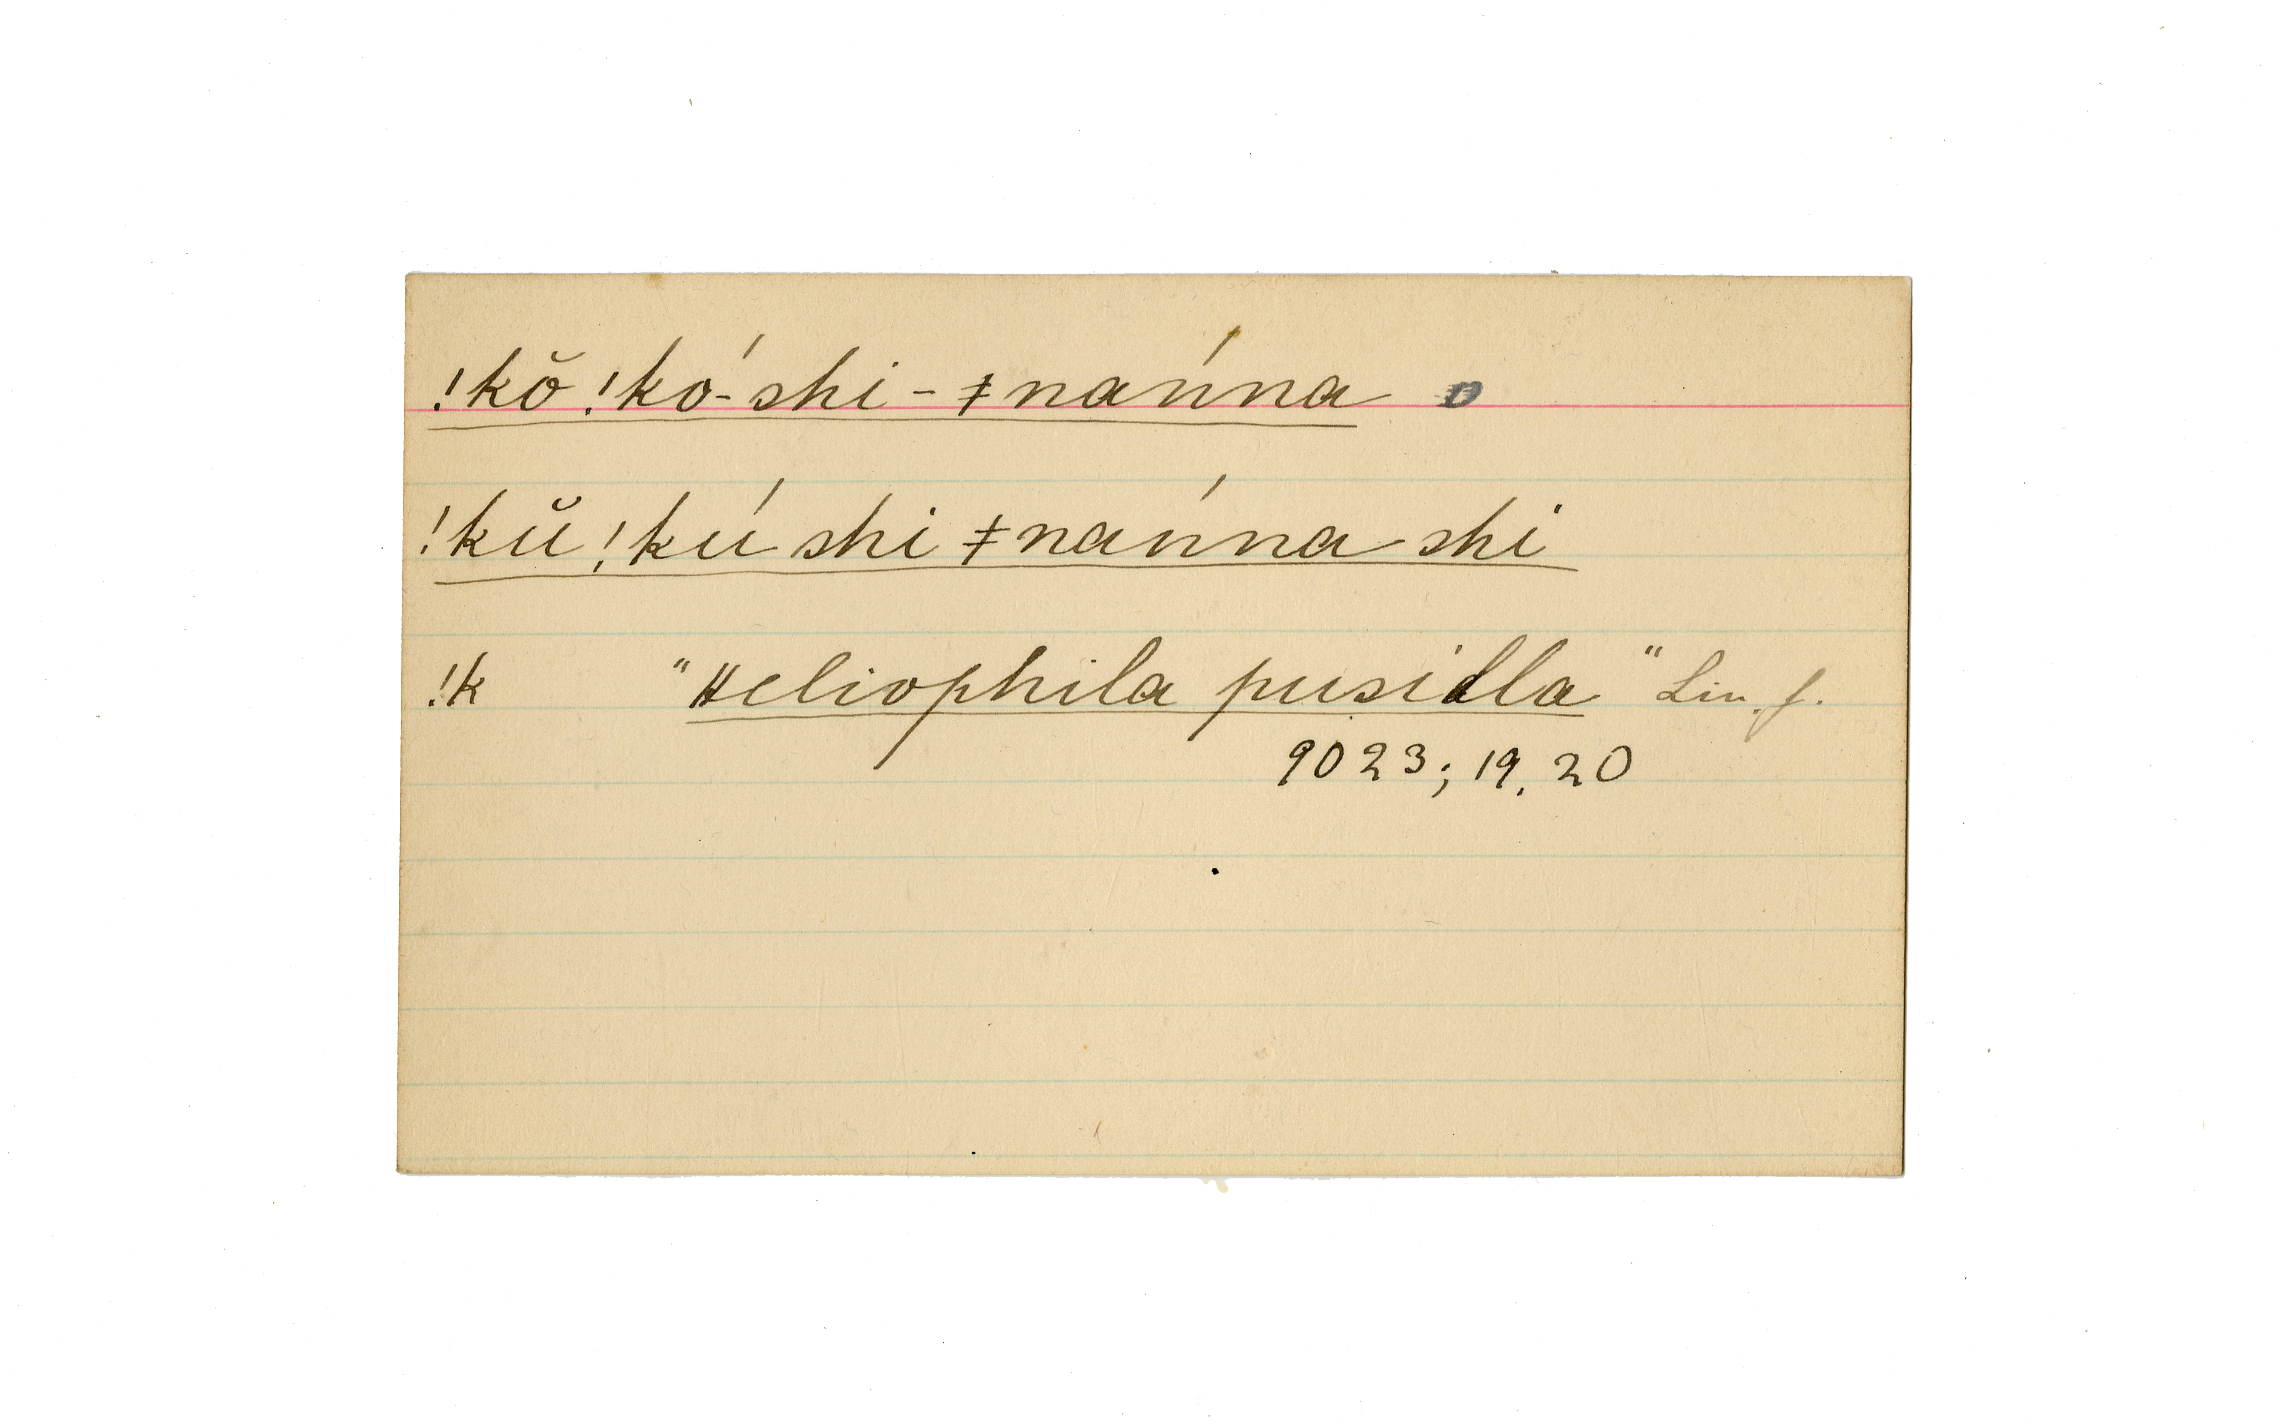 !kŏ !kó-shi-ǂnańna
!kŭ !kú shi ǂnańna shi
!k "Heliophila pusilla" Lin. f.
9023; 19, 20